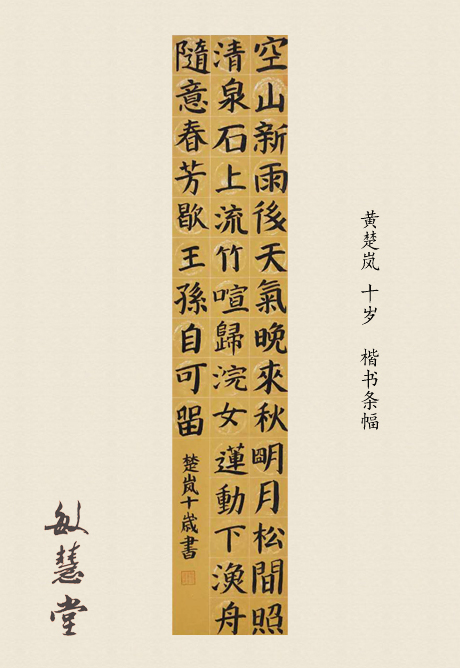 黄楚岚 十岁 楷书条幅
空山新雨後天氣晚來秋明月松間照
清泉石上流竹喧歸浣女蓮動下漁舟
隨意春芳歇王孫自可留
楚嵐十歲書
敏慧堂